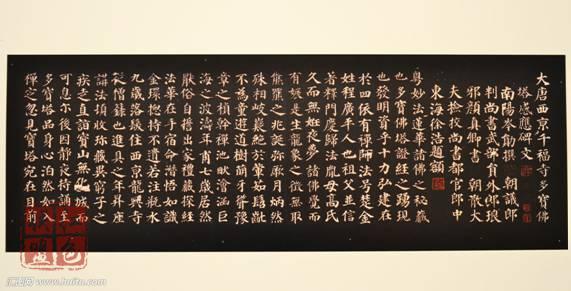 大唐西京千福寺多寶佛
塔感應碑文
南陽岑勛撰 朝議郎
判尚書武部員外郎琅
邪顏真卿書 朝散大
夫撿挍尚書都官郎中
東海徐浩題額
粵妙法蓮華諸佛之秘藏
也多寶佛塔證經之踴現
也發明資乎十力弘建在
於四依有禪師法号楚金
姓程廣平人也祖父並信
著釋門慶歸法胤母高氏
久而無姙夜夢諸佛覺而
有娠是生龍象之徵無取
熊羆之兆誕弥厥月炳然
殊相岐嶷絕於葷茹髫齔
不為童遊道樹萌牙聳豫
章之楨幹禪池畎澮涵巨
海之波濤年甫七歲居然
厭俗自誓出家禮藏探經
法華在手宿命潛悟如識
金環捴持不遺若注瓶水
九歲落髮住西京龍興寺
從僧籙也進具之年昇座
講法頓收珍藏異窮子之
疾走直詣寶山無化城而
可息尒後因靜夜持誦至
多寶塔品身心泊然如入
禪定忽見寶塔宛在目前
www.huitu.com